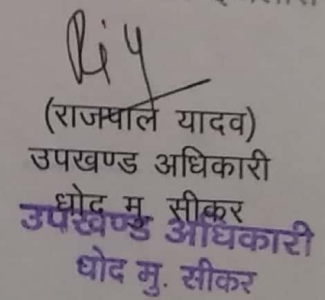 (राजपाल यादव)
उपखण्ड अधिकारी
धोद मु. सीकर
उपखण्ड अधिकारी
धोद मु. सीकर